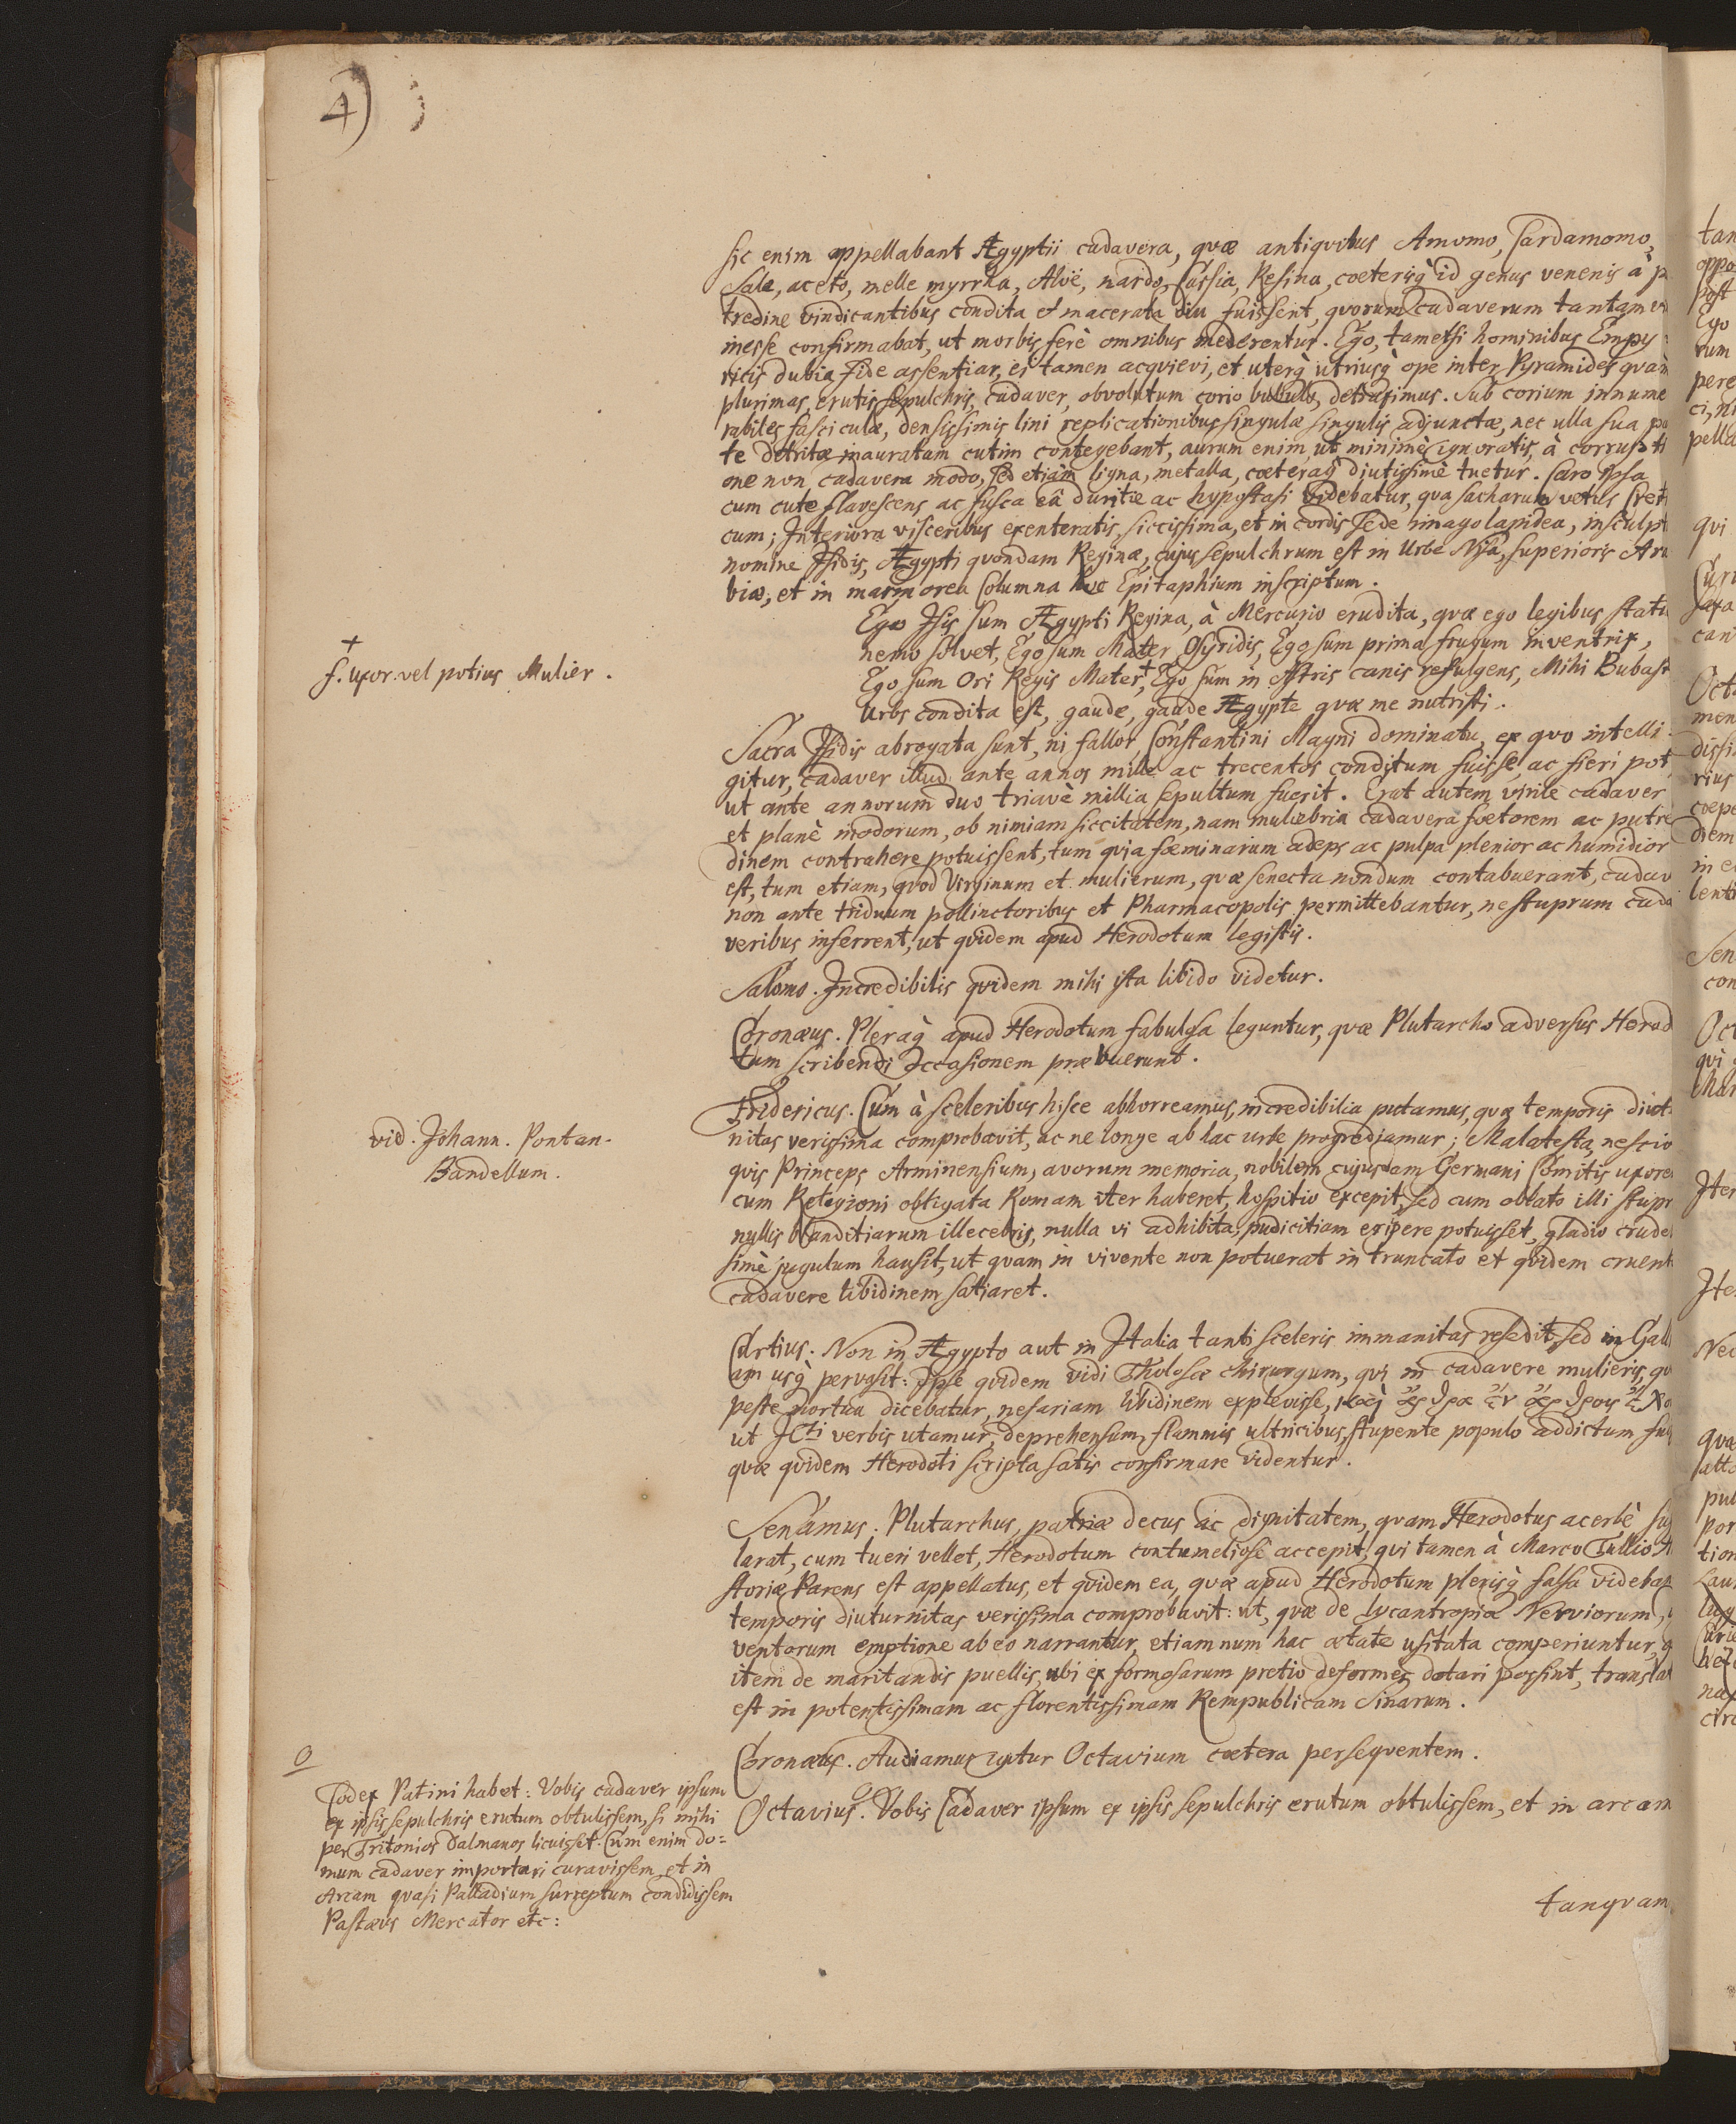 4)
sic enim appellabant Ægyptii cadavera, quæ antiquitus Amomo, Cardamomo,
Sale, aceto, melle myrrha, Aloë, nardo, Cassia, Resina, coeterisq̀ id genus venenis à p
tredine vindicantibus condita et macerata diu fuissent, quorum cadaverum tantam
inesse confirmabat, ut morbis ferè omnibus mederentur. Ego, tametsi hominibus Empy
ricis dubia fide assentiar, ei tamen acqvievi, et uterq̀ utriusq̀ ope inter Pyramides quàm
plurimas, erutis sepulchris, cadaver, obvolutum corio bubulo, detraximus. Sub corium innume
rabiles fasciculæ, densissimis lini replicationibus singulæ singulis adjunctæ, nec ulla sua pa
te detritæ inauratam cutim contegebant, aurum enim, ut minimè ignoratis, à corrupti
one non cadavera modo, sed etiàm ligna, metalla, coeteraq̀ diutissimè tuetur. Caro ipsa
cum cute flavescens ac fusca eâ duritie ac hypostasi videbatur, qua sacharum vetus Creti
cum; Interiora visceribus exenteratis, siccissima, et in cordis sede imago lapidea, insculpt
nomine Isidis, Ægypti quondam Reginæ, cujus sepulchrum est in Urbe Nysa, superioris Ara
biæ, et in marmorea Columna hoc Epitaphium inscriptum.
Ego Isis sum Ægypti Regina, à Mercurio erudita, quæ ego legibus statu
nemo solvet, Ego sum Mater Osyridis, Ego sum prima frugum inventrix,
Ego sum Ori Regis Mater, † Ego sum in Astris canis refulgens, Mihi Bubast
Urbs condita est, gaude, gaude Ægypte quæ me nutristi.
†
f. uxor. vel potius Mulier.
Sacra Isidis abrogata sunt, ni fallor, Constantini Magni dominatu, ex quo intelli
gitur, cadaver illud ante annos mille ac trecentos conditum fuisse, ac fieri pot,
ut ante annorum duo triavè millia sepultum fuerit. Erat autem virile cadaver
et planè inodorum, ob nimiam siccitatem, nam muliebria cadavera foetorem ac putre
dinem contrahere potuissent, tum quia foeminarum adeps ac pulpa plenior ac humidior
est, tum etiam, quod Virginum et mulierum, quæ senecta nondum contabuerant, cadav
non ante triduum pollinctoribus et Pharmacopolis permittebantur, ne stuprum cada
veribus inferrent, ut quidem apud Herodotum legistis.
Salomo. Incredibilis quidem mihi ista libido videtur.
Coronæus. Pleraq̀ apud Herodotum fabulosa leguntur, quæ Plutarcho adversus Herod
tum scribendi occasionem præbuerunt.
Fridericus. Cum à sceleribus hisce abhorreamus, incredibilia putamus, quæ temporis diut
nitas verissima comprobavit, ac ne longe ab hac urbe progrediamur; Malatesta, nescio
quis Princeps Arminensium, avorum memoria, nobilem cujusdam Germani Comitis uxore
cum Religioni obligata Romam iter haberet, hospitio excepit, sed cum oblato illi stupr
nullis blanditiarum illecebris, nulla vi adhibita, pudicitiam eripere potuisset, gladio crudel
simè jugulum hausit, ut quam in vivente non potuerat in truncato et quidem cruent
cadavere libidinem satiaret.
vid. Johann. Pontan.
Bandellum.
Curtius. Non in Ægypto aut in Italia tanti sceleris immanitas resedit, sed in Gall
am usq̀ pervasit: Ipse quidem vidi Tholosæ chirurgum, qui in cadavere mulieris, qu
peste mortua dicebatur, nefariam libidinem explevisse,
ut ICti verbis utamur, deprehensum, flammis ultricibus, stupente populo addictum fu
quæ quidem Herodoti scripta satis confirmare videntur.
Senamus. Plutarchus, patriæ decus ac dignitatem, quam Herodotus acerbè su
larat, cum tueri vellet, Herodotum contumeliosè accepit, qui tamen à Marco Tullio H
storiæ Parens est appellatus, et quidem ea, quæ apud Herodotum plerisq̀ falsa videban
temporis diuturnitas verissima comprobavit: ut, quæ de lycantropia Nerviorum,
ventorum emptione ab eo narrantur, etiamnum hac ætate usitata comperiuntur, q
item de maritandis puellis, ubi ex formosarum pretio deformes dotari possint, translat
est in potentissimam ac florentissimam Rempublicam Sinarum.
Coronæus. Audiamus igitur Octavium coetera persequentem.
Octavius. Vobis Cadaver ipsum ex ipsis sepulchris erutum obtulissem, et in arcam
O
Codex Patini habet: Vobis cadaver ipsum
ex ipsis sepulchris erutum obtulissem, si mihi
per Tritonios Dalmanos licuisset. Cum enim do=
mum cadaver importari curavissem, et in
Arcam quasi Palladium surreptum condidissem
Pastæus Mercator etc:
tanquam